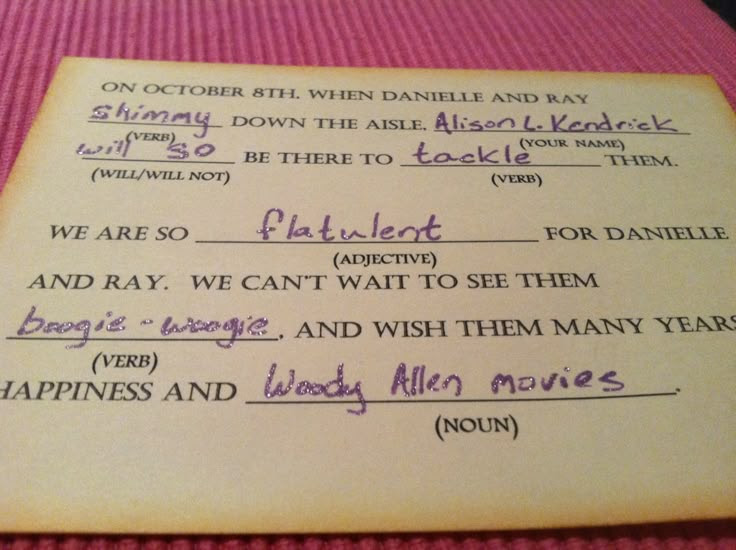 ON OCTOBER 8TH. WHEN DANIELLE AND RAY
shimmy DOWN THE AISLE. Alison L. Kendrick
(VERB) (YOUR NAME)
will so BE THERE TO tackle THEM.
(WILL/WILL NOT) (VERB)
WE ARE SO flatulent FOR DANIELLE
(ADJECTIVE)
AND RAY. WE CAN'T WAIT TO SEE THEM
boogie-woogie, AND WISH THEM MANY YEARS
(VERB)
HAPPINESS AND Woody Allen movies.
(NOUN)